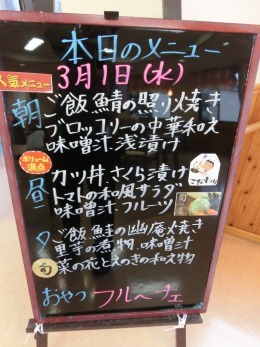 本日のメニュー
人気メニュー
3月1日(水)
朝
ご飯 鯖の照り焼き
ブロッコリーの中華和え
味噌汁 浅漬け
ボリューム満点
昼
カツ丼 さくら漬け
トマトの和風サラダ
味噌汁 フルーツ
夕
ご飯 鮭の幽庵焼き
里芋の煮物 味噌汁
旬
菜の花とえのきの和え物
おやつ フルーチェ